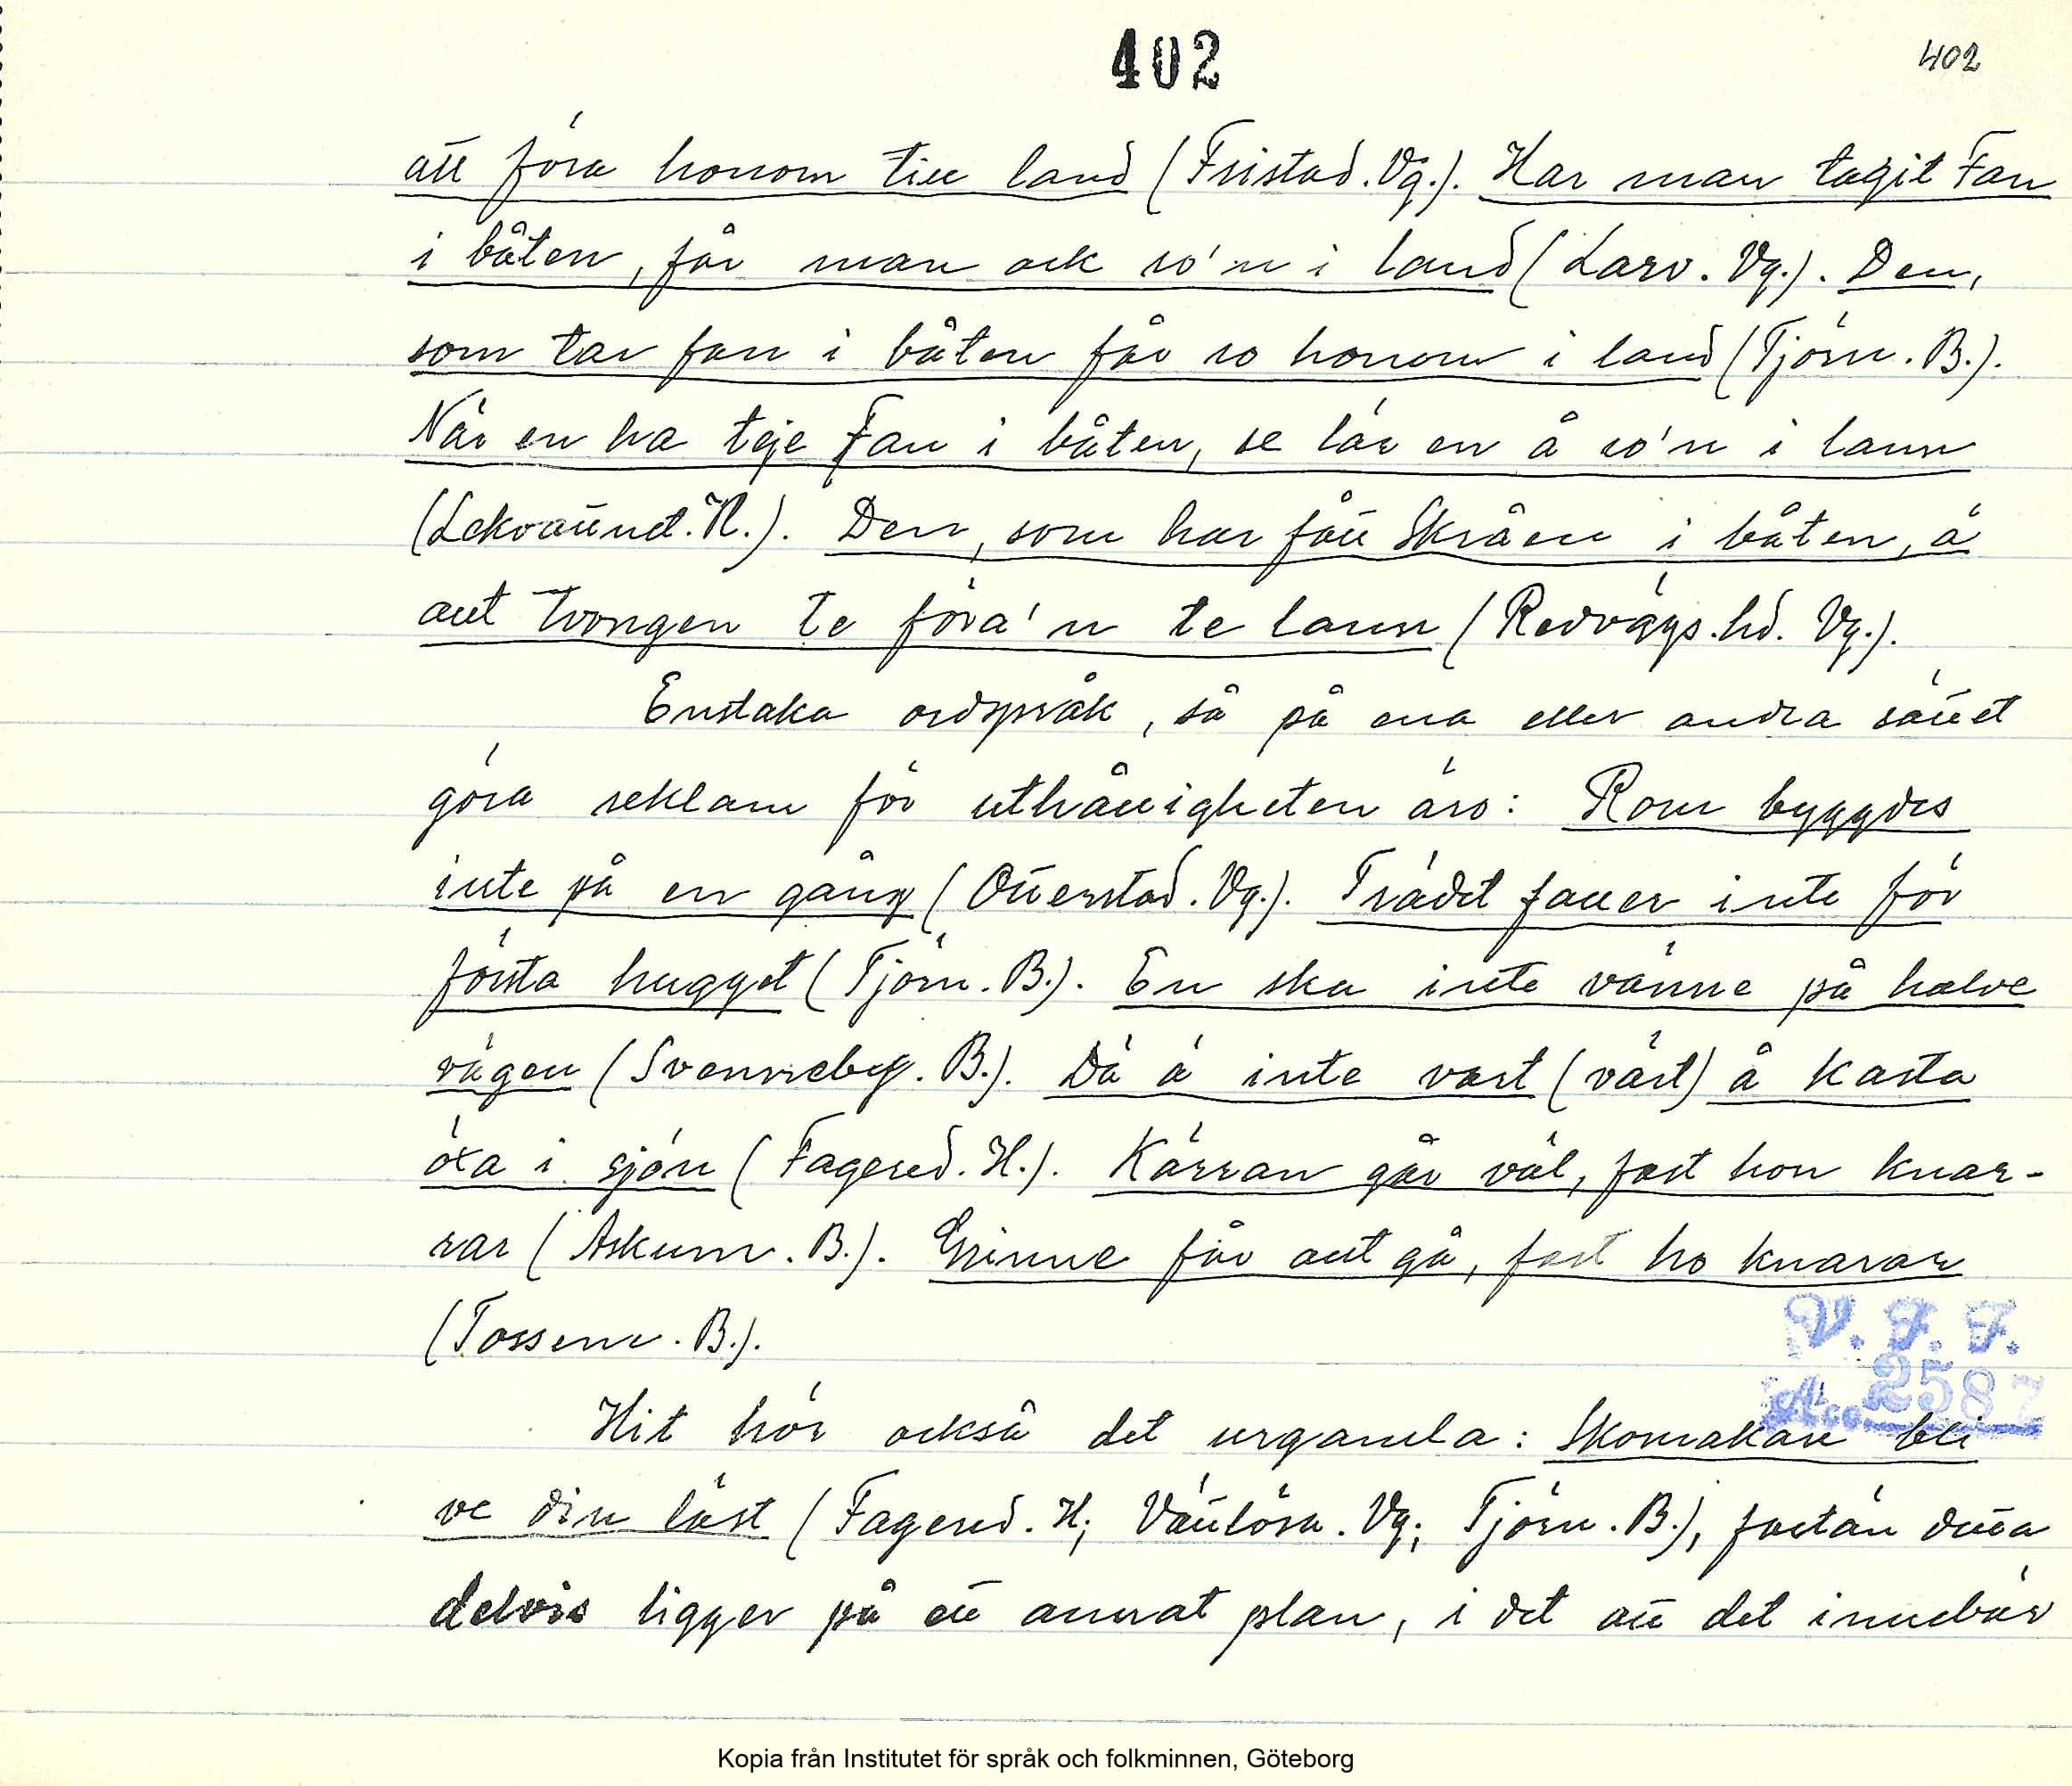 402
402
att föra honom till land (Fristad. Vg.). Har man tagit Fan
i båten, får man ock ro'n i land (Larv. Vg.). Den,
som tar fan i båten får ro honom i land (Tjörn. B.).
När en ha teje Fan i båten, se lär en å ro'n i lann
(Lekvattnet. V.). Den, som har fått Skråen i båten, ä
allt tvongen te föra'n te lann (Redvägs. hd. Vg.).
Enstaka ordspråk, så på ena eller andra sättet
göra reklam för uthålligheten äro: Rom byggdes
inte på en gång (Otterstad. Vg.). Trädet faller inte för
första hugget (Tjörn. B.). En ska inte vänne på halve
vägen (Svenneby. B.). Dä ä inte vart (värt) å kasta
öxa i sjön (Fagered. H.). Kärran går väl, fast hon knar-
rar (Askum. B.). Grinne får allt gå, fast ho knarar
(Tossene. B.).
V. F. F.
Acc. 2587
Hit hör också det urgamla: Skomakare bli
ve din läst (Fagered. H; Vättlösa. Vg; Tjörn. B.), fastän detta
delvis ligger på ett annat plan, i det att det innebär
Kopia från Institutet för språk och folkminnen, Göteborg